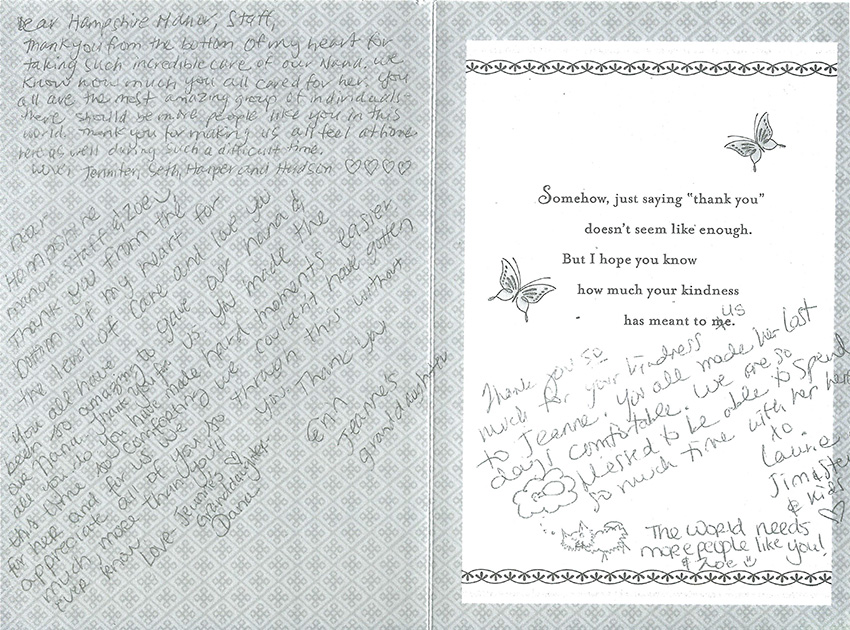 Dear Hampshire Manor, Staff,
Thank you from the bottom of my heart for
taking such incredible care of our Nana. We
know how much you all cared for her. You
all are the most amazing group of individuals
there should be more people like you in this
world. Thank you for making us all feel at home
here as well during such a difficult time.
Love, Jennifer, Seth, Harper and Hudson ♡♡♡♡
Dear
Hampshire
manors staff & Zoey
Thank you from the
bottom of my heart for
the level of care and love you
all have gave our nana &
us you made the
hard moments easier
we couldn't have gotten
through this without
you. Thank you
Erin
Jeanne's
granddaughter
You all have
been so amazing to
our Nana. Thank you for
all you do you have made
this time so comforting
for her and for us. We
appreciate all of you so
much more than you'll
ever know
Love Jeanne's ♡
Granddaughter-
Dana
Somehow, just saying "thank you"
doesn't seem like enough.
But I hope you know
how much your kindness
has meant to me.
us
Thank you so
much for your kindness
to Jeanne. You all made her last
days comfortable. We are so
blessed to be able to spend
so much time with her here
to.
Laurie
Jim &
& Kids
♡
The world needs
more people like you!
& Zoe